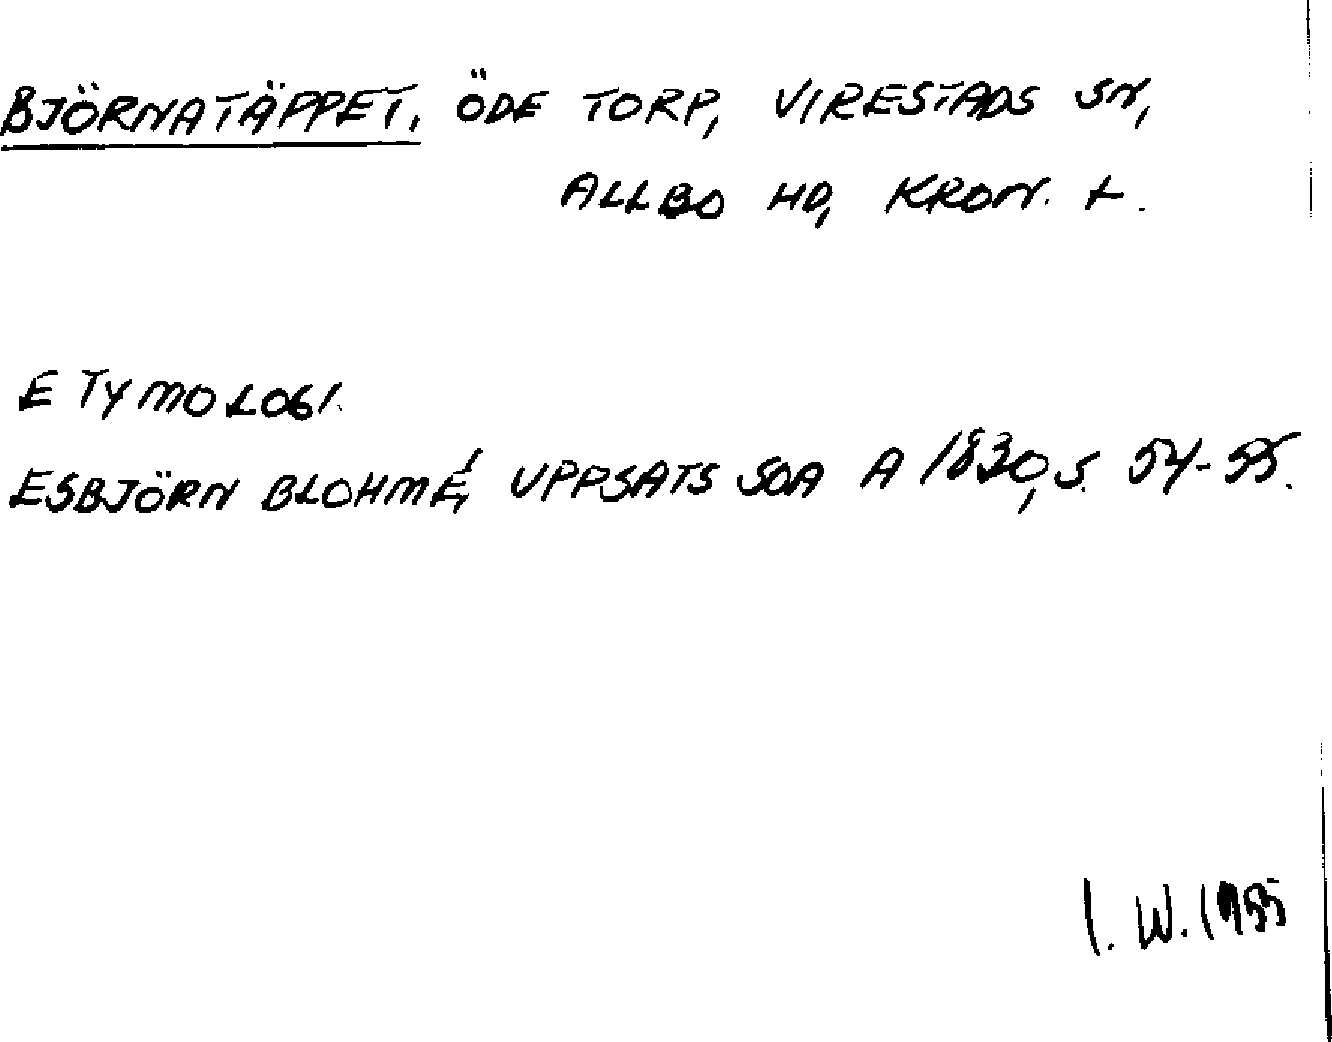 BJÖRNATÄPPET, ÖDE TORP, VIRESTADS SN,
ALLBO HD, KRON. L.
ETYMOLOGI.
ESBJÖRN BLOHMÉ, UPPSATS SOA A 1830, S. 54-55.
I. W. 1955